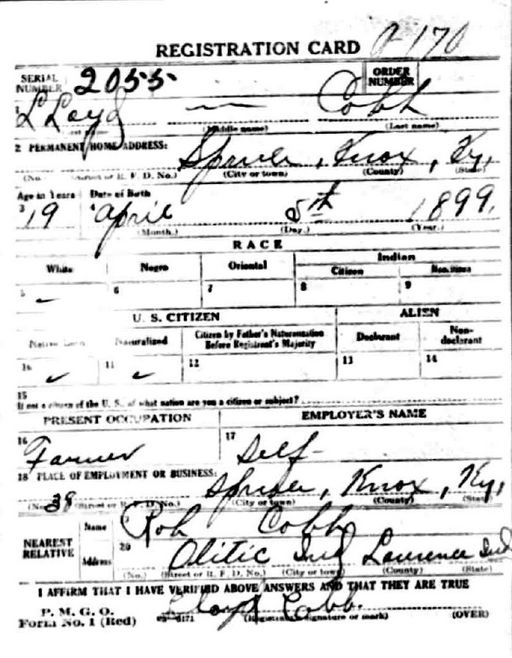 REGISTRATION CARD
SERIAL NUMBER 2055 ORDER NUMBER
LLoyd — Cobb
(Middle name) (Last name)
2 PERMANENT HOME ADDRESS: Knox, Ky,
(No. (Street or R. F. D. No.) (City or town) (County) (State)
Age in Years Date of Birth
3 19 4 April 5th 1899.
(Month.) (Day.) (Year.)
RACE
White Negro Oriental Indian
Citizen Noncitizen
5 ✓ 6 7 8 9
U. S. CITIZEN ALIEN
Native Born Naturalized Citizen by Father's Naturalization Before Registrant's Majority Declarant Non-declarant
10 ✓ 11 ✓ 12 13 14
15
If not a citizen of the U. S., of what nation are you a citizen or subject?
PRESENT OCCUPATION EMPLOYER'S NAME
16 Farmer 17 Self
18 PLACE OF EMPLOYMENT OR BUSINESS: Knox, Ky,
(No. 38 (Street or R. F. D. No.) (City or town) (County) (State)
NEAREST RELATIVE
Name Rob Cobb
Address 20 Olitic Ind Lawrence Ind
(No.) (Street or R. F. D. No.) (City or town) (County) (State)
I AFFIRM THAT I HAVE VERIFIED ABOVE ANSWERS AND THAT THEY ARE TRUE
P. M. G. O.
Form No. 1 (Red) Lloyd Cobb.
(Registrant's signature or mark) (OVER)